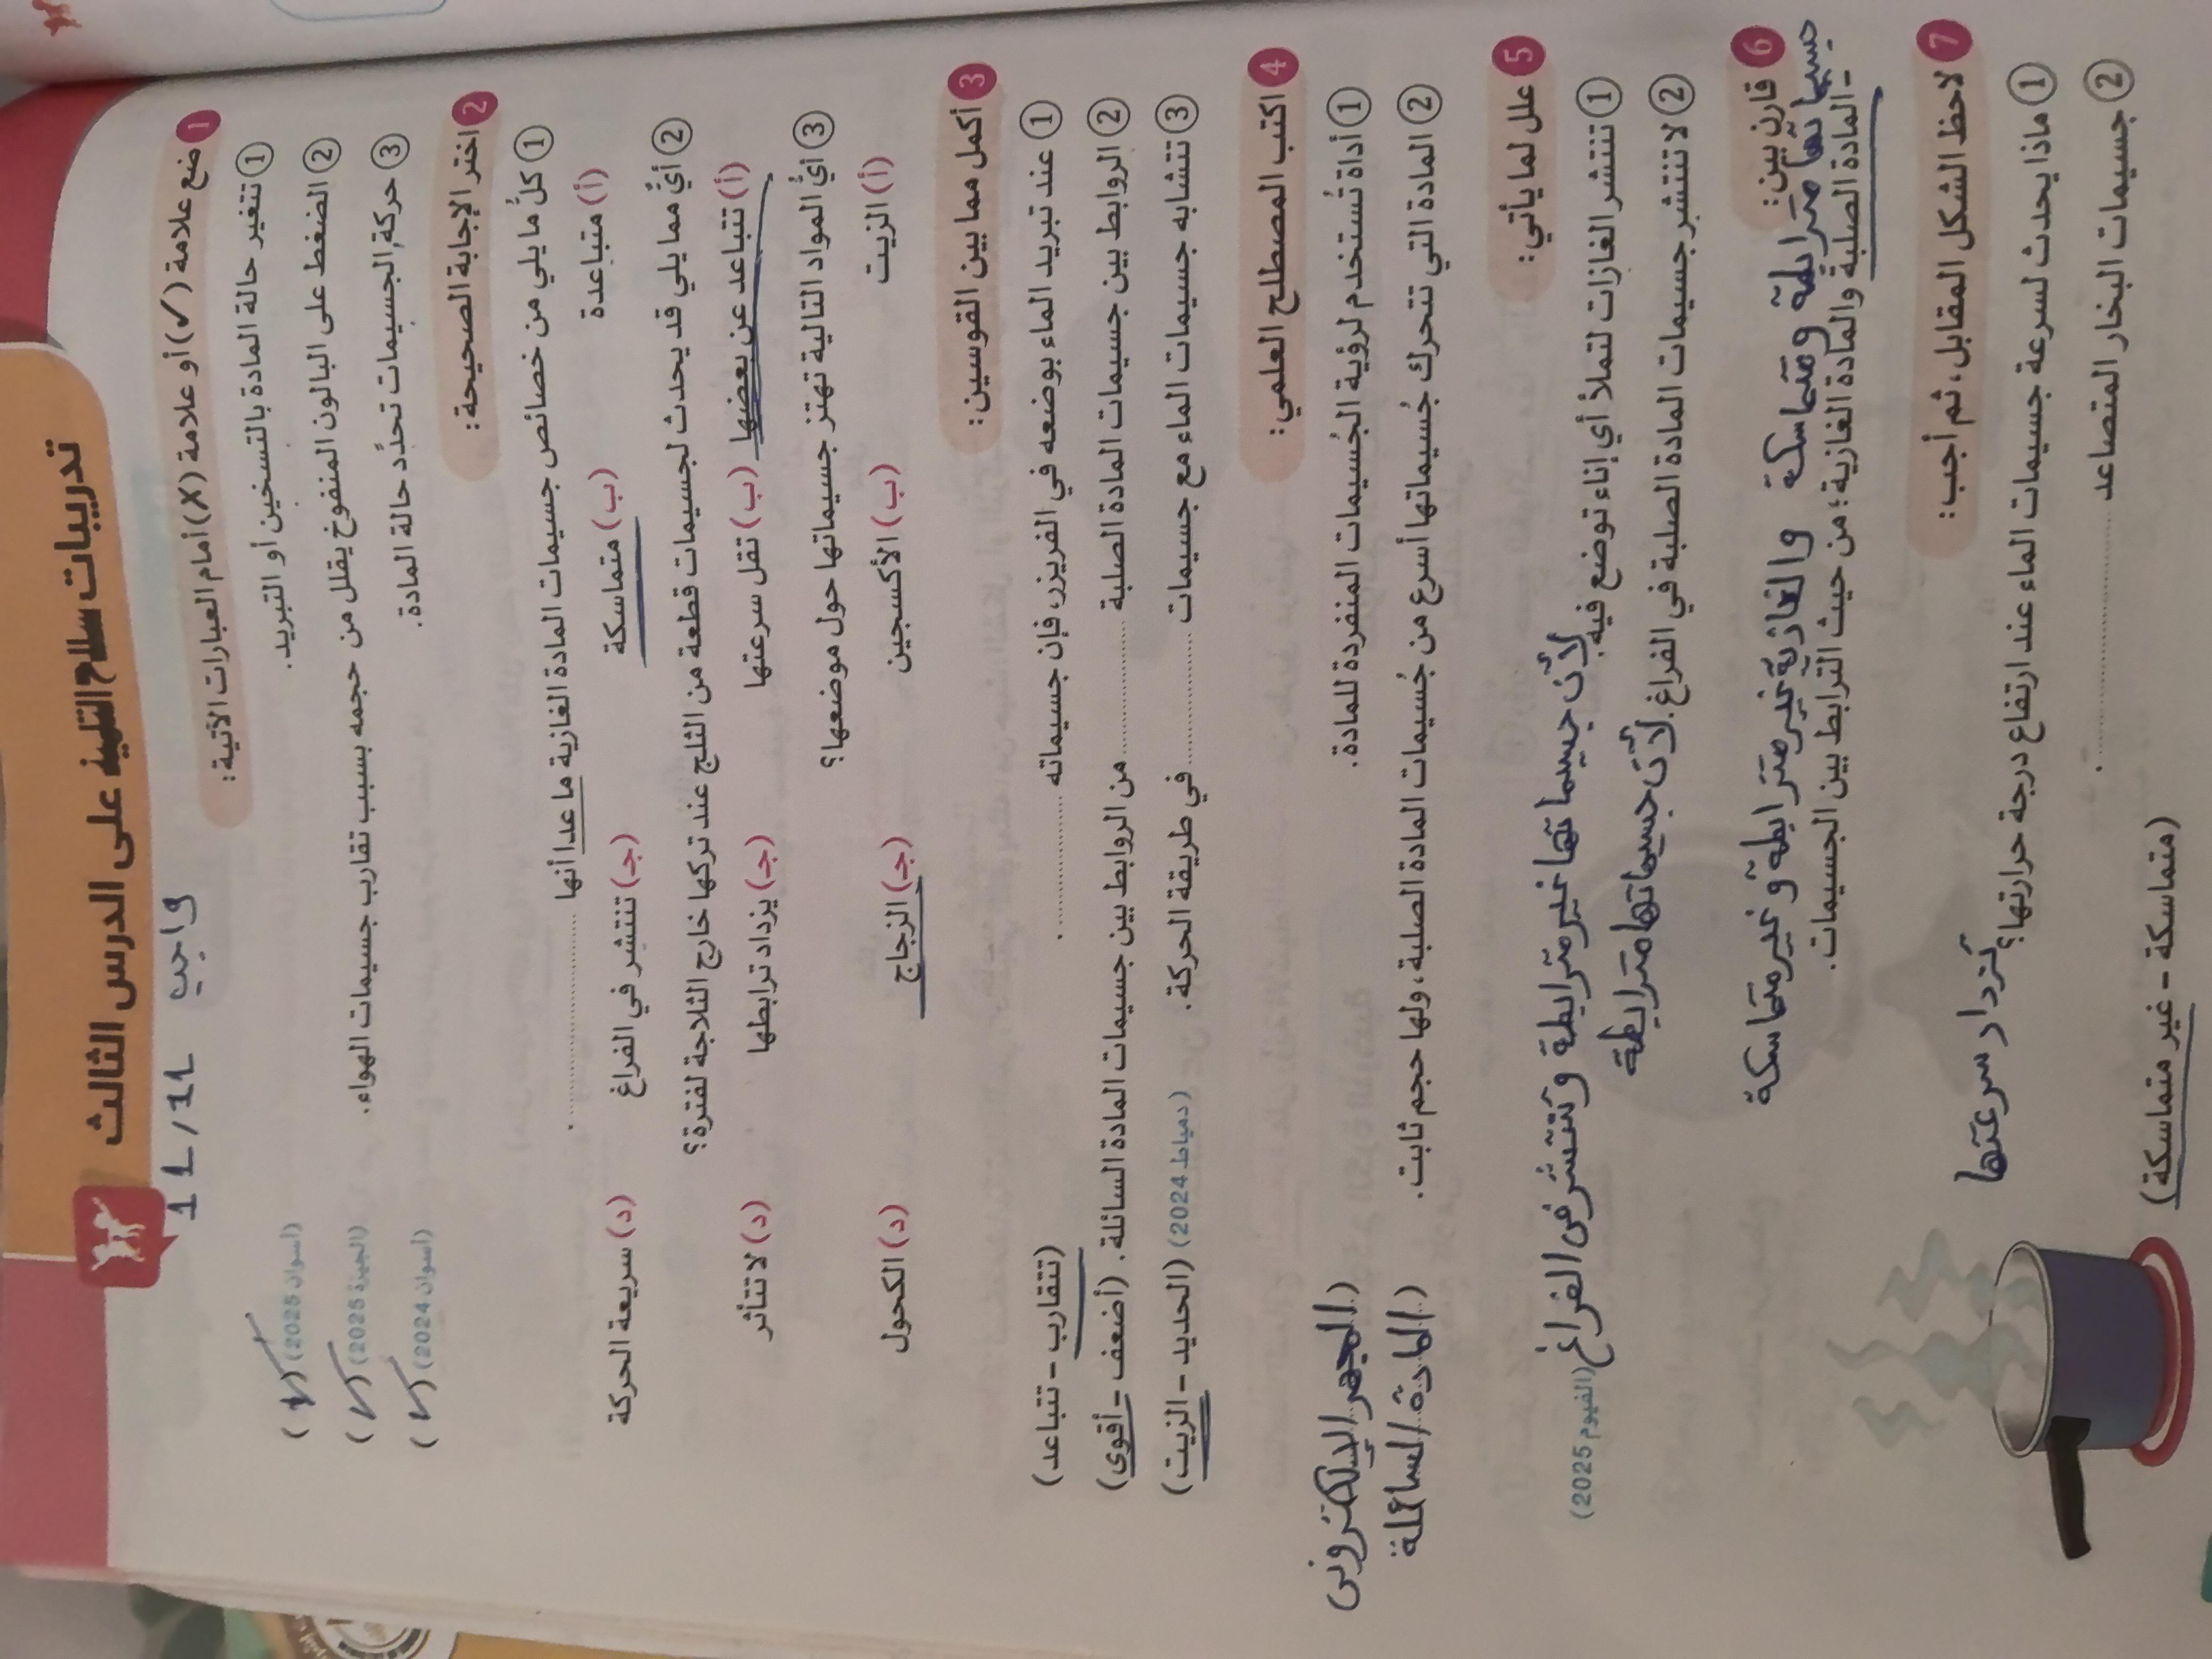 تدريبات سلاح التلميذ على الدرس الثالث
واجب 11/11
1 ضع علامة (✓) أو علامة (✗) أمام العبارات الآتية:
① تتغير حالة المادة بالتسخين أو التبريد. (أسوان 2025) (✓)
② الضغط على البالون المنفوخ يقلل من حجمه بسبب تقارب جسيمات الهواء. (الجيزة 2025) (✓)
③ حركة الجسيمات تحدِّد حالة المادة. (أسوان 2024) (✓)
2 اختر الإجابة الصحيحة:
① كلُّ ما يلي من خصائص جسيمات المادة الغازية ما عدا أنها .................... .
(أ) متباعدة (ب) متماسكة (جـ) تنتشر في الفراغ (د) سريعة الحركة
② أيٌّ مما يلي قد يحدث لجسيمات قطعة من الثلج عند تركها خارج الثلاجة لفترة؟
(أ) تتباعد عن بعضها (ب) تقل سرعتها (جـ) يزداد ترابطها (د) لا تتأثر
③ أيُّ المواد التالية تهتز جسيماتها حول موضعها؟
(أ) الزيت (ب) الأكسجين (جـ) الزجاج (د) الكحول
3 أكمل مما بين القوسين:
① عند تبريد الماء بوضعه في الفريزر، فإن جسيماته .................... . (تتقارب – تتباعد)
② الروابط بين جسيمات المادة الصلبة .................... من الروابط بين جسيمات المادة السائلة. (أضعف – أقوى)
③ تتشابه جسيمات الماء مع جسيمات .................... في طريقة الحركة. (دمياط 2024) (الحديد – الزيت)
4 اكتب المصطلح العلمي:
① أداة تُستخدم لرؤية الجُسيمات المنفردة للمادة. (المجهر الإلكتروني)
② المادة التي تتحرك جُسيماتها أسرع من جُسيمات المادة الصلبة، ولها حجم ثابت. (المادة السائلة)
5 علل لما يأتي:
① تنتشر الغازات لتملأ أي إناء توضع فيه. (الفيوم 2025)
لأن جسيماتها غير مترابطة وتنتشر في الفراغ
② لا تنتشر جسيمات المادة الصلبة في الفراغ. لأن جسيماتها مترابطة
6 قارن بين:
- المادة الصلبة والمادة الغازية؛ من حيث الترابط بين الجسيمات.
جسيماتها مترابطة ومتماسكة والغازية غير مترابطة وغير متماسكة
7 لاحظ الشكل المقابل، ثم أجب:
① ماذا يحدث لسرعة جسيمات الماء عند ارتفاع درجة حرارتها؟
تزداد سرعتها
② جسيمات البخار المتصاعد .................... .
(متماسكة – غير متماسكة)